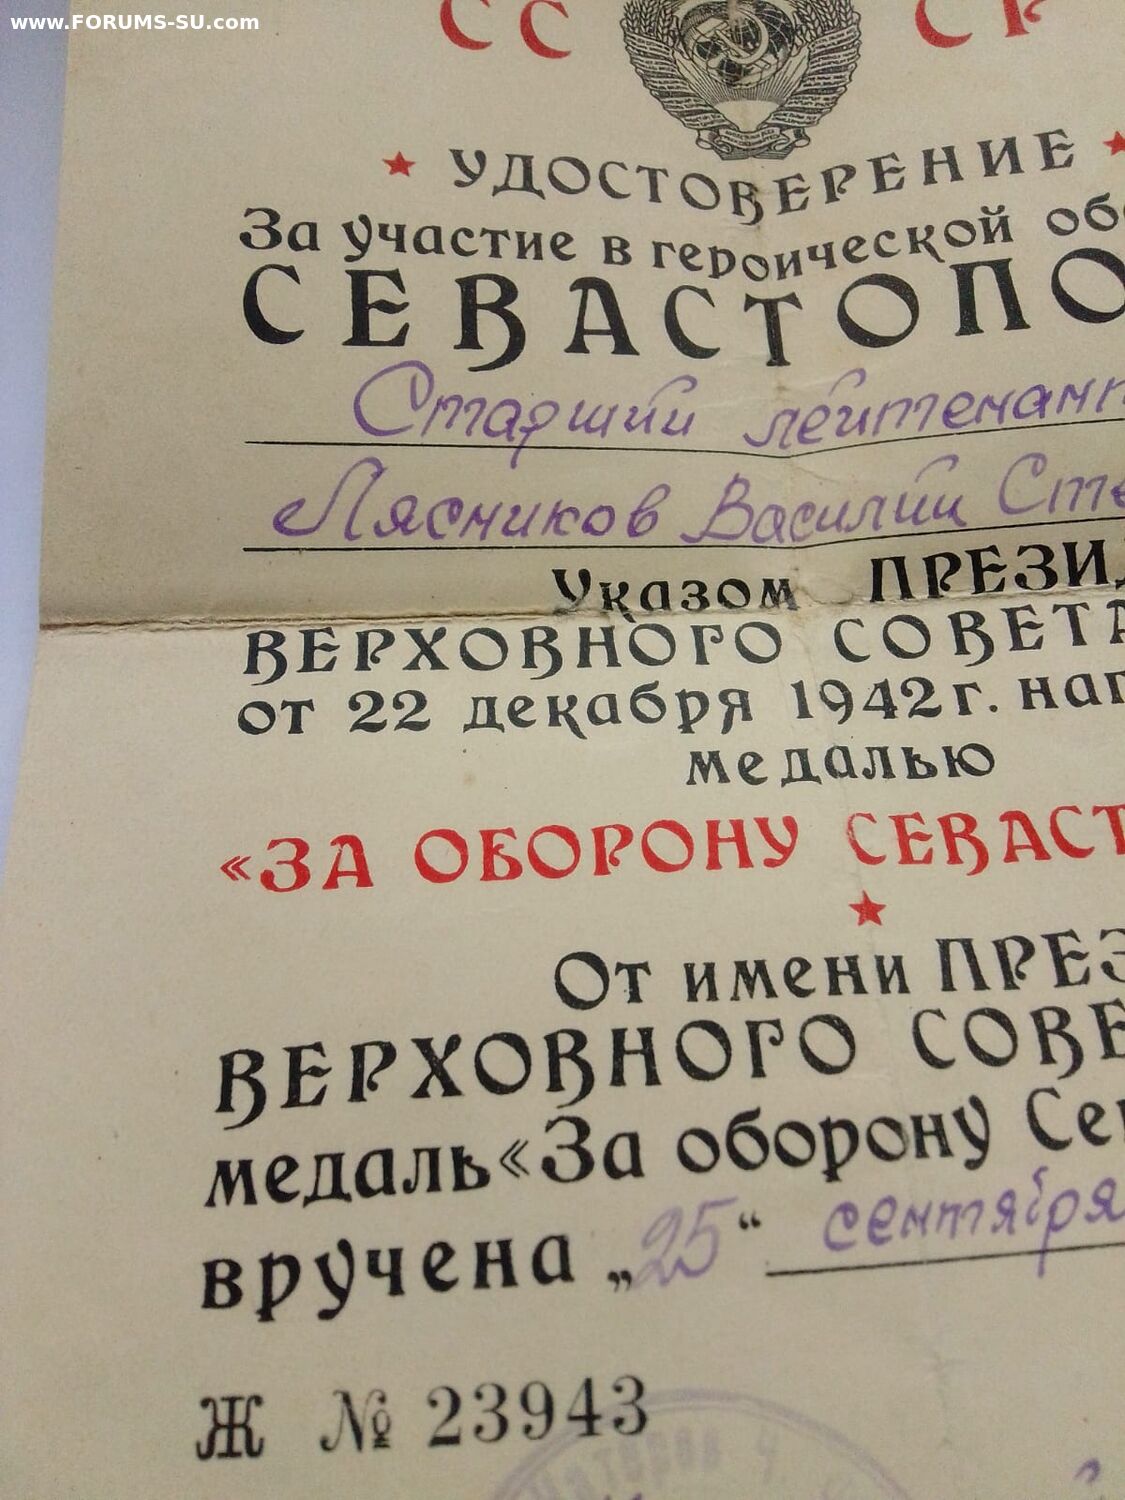 www.FORUMS-SU.com
СС СР
УДОСТОВЕРЕНИЕ
За участие в героической об
СЕВАСТОПО
Старший лейтенант
Лясников Василий Сте
Указом ПРЕЗИД
ВЕРХОВНОГО СОВЕТА
от 22 декабря 1942 г. наг
медалью
«ЗА ОБОРОНУ СЕВАСТ
От имени ПРЕЗ
ВЕРХОВНОГО СОВЕ
медаль «За оборону Сев
вручена „25“ сентября
Ж № 23943